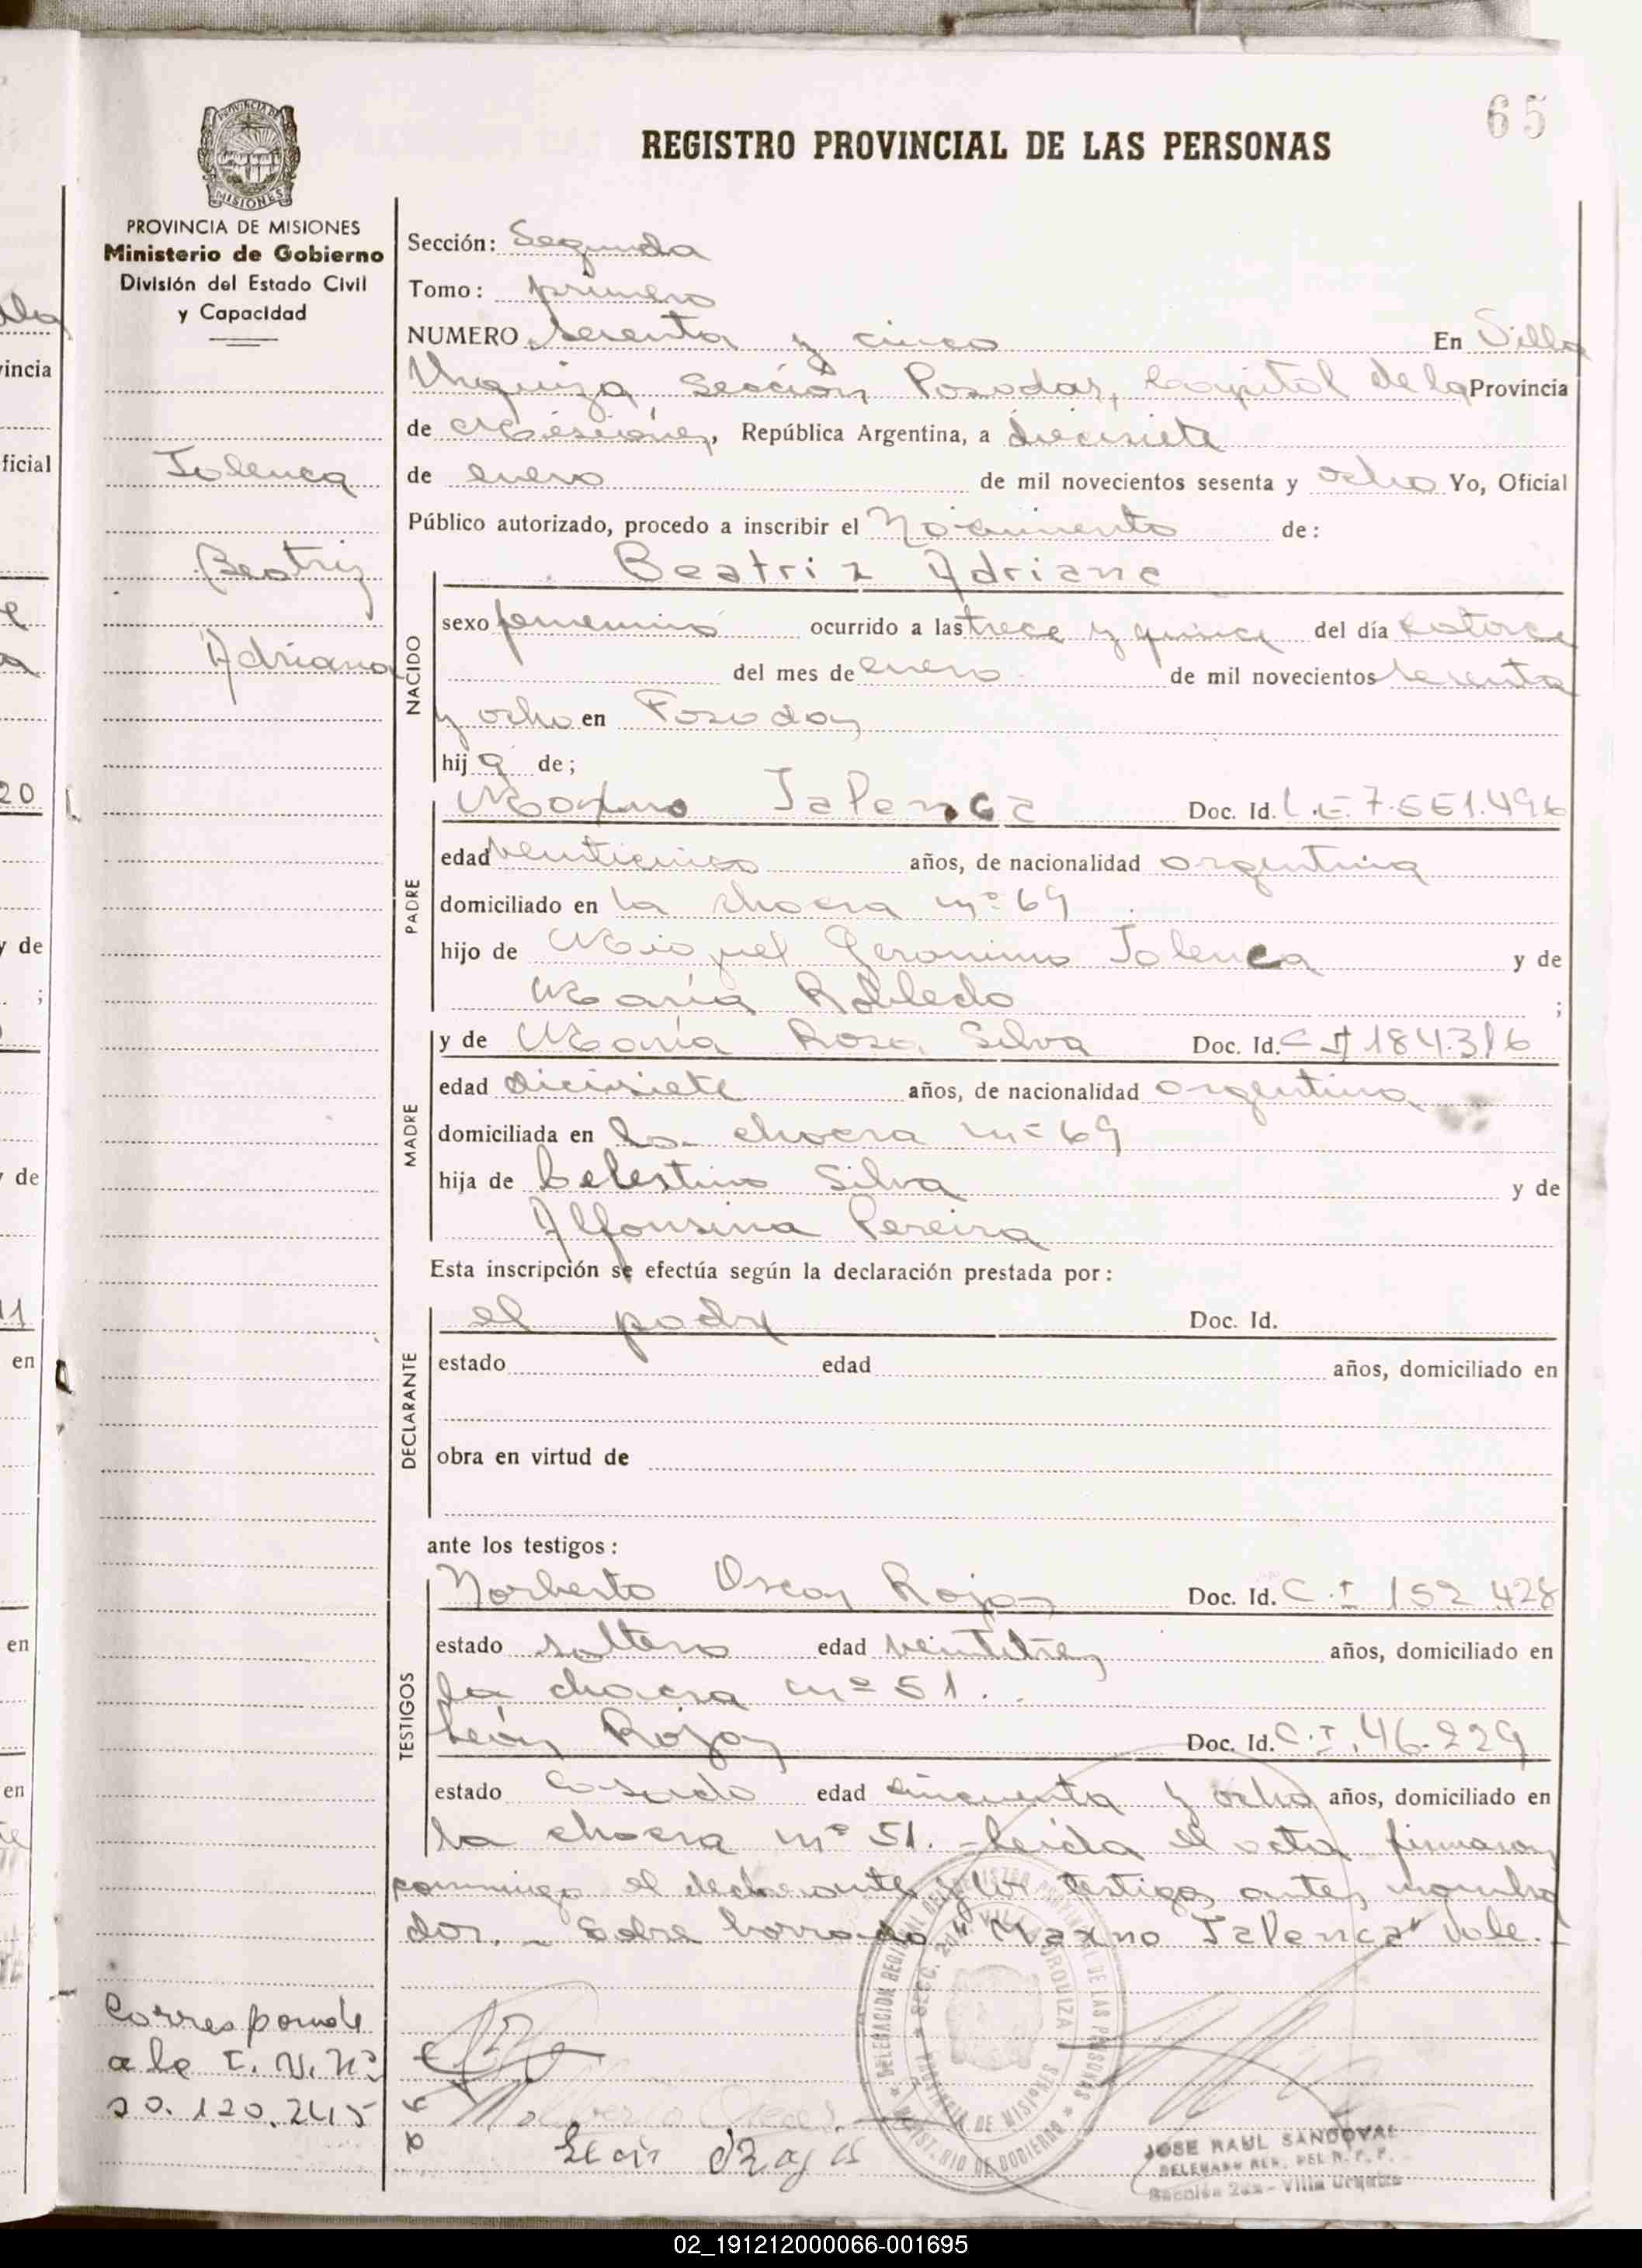 65
REGISTRO PROVINCIAL DE LAS PERSONAS
PROVINCIA DE MISIONES
Ministerio de Gobierno
División del Estado Civil
y Capacidad
Talenca
Beatriz
Adriana
Sección: Segunda
Tomo: primero
NUMERO sesenta y cinco En Villa
Urquiza Sección Posadas, Capital de la Provincia
de Misiones, República Argentina, a diecisiete
de enero de mil novecientos sesenta y ocho Yo, Oficial
Público autorizado, procedo a inscribir el Nacimiento de:
Beatriz Adriana
NACIDO
sexo femenino ocurrido a las trece y quince del día catorce
del mes de enero de mil novecientos sesenta
y ocho en Posadas
hija de;
PADRE
Maxmo Talenca Doc. Id. L.E. 7.551.496
edad veinticinco años, de nacionalidad argentina
domiciliado en la chacra nº 69
hijo de Miguel Geronimo Talenca y de
María Robledo ;
MADRE
y de María Rosa Silva Doc. Id. C I 184.316
edad diecisiete años, de nacionalidad argentina
domiciliada en la chacra nº 69
hija de Celestino Silva y de
Alfonsina Pereira
Esta inscripción se efectúa según la declaración prestada por:
DECLARANTE
el padre Doc. Id.
estado edad años, domiciliado en
obra en virtud de
ante los testigos:
TESTIGOS
Norberto Oscar Rojas Doc. Id. C.I 152 428
estado soltero edad veintitres años, domiciliado en
la chacra nº 51.
León Rojas Doc. Id. C.I. 46.229
estado casado edad cincuenta y ocho años, domiciliado en
la chacra nº 51. - Leída el acta firmaron
conmigo el declarante y los testigos antes nombra
dos. - Sobre borrado "Maxno Talenca" Vale. -
Corresponde
a la C. N. Nº
20.120.245
DELEGACION REGIONAL DEL REGISTRO PROVINCIAL DE LAS PERSONAS
SECC. 2da VILLA URQUIZA
PROVINCIA DE MISIONES
MINISTERIO DE GOBIERNO
León Rojas
JOSE RAUL SANDOVAL
Sección 2da - Villa Urquiza
02_191212000066-001695